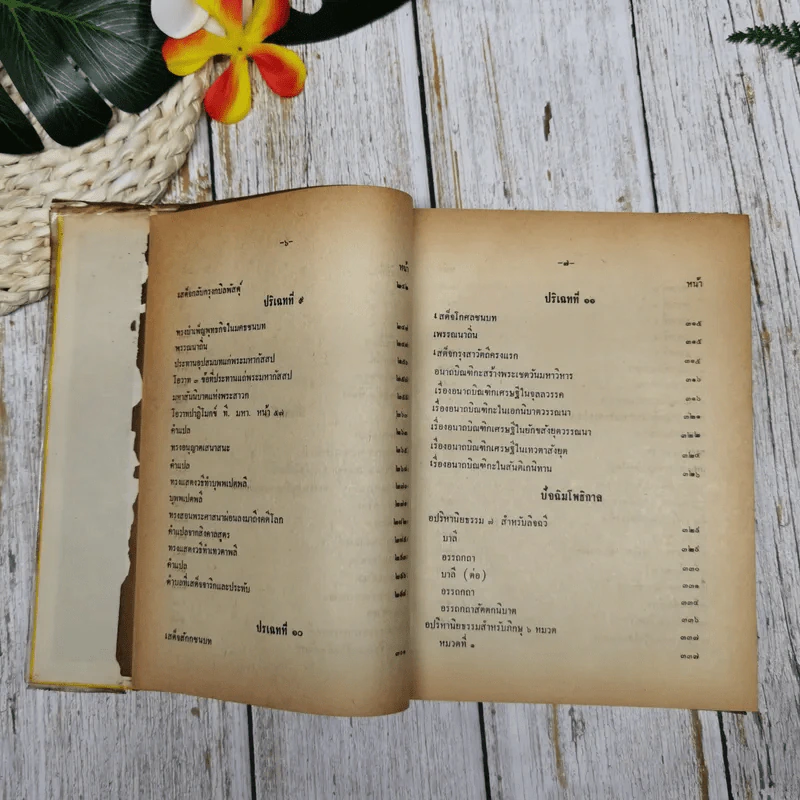 -๖-
หน้า
เสด็จกลับกรุงกบิลพัสดุ์
ปริเฉทที่ ๙
ทรงบำเพ็ญพุทธกิจในมคธชนบท
พรรณนาถิ่น
ประทานอุปสมบทแก่พระมหากัสสป
โอวาท ๓ ข้อที่ประทานแก่พระมหากัสสป
มหาสันนิบาตแห่งพระสาวก
โอวาทปาฏิโมกข์ ที. มหา. หน้า ๕๗
คำแปล
ทรงอนุญาตเสนาสนะ
คำแปล
ทรงแสดงวิธีทำบุพพเปตพลี
บุพพเปตพลี
ทรงสอนพระศาสนาผ่อนลงมาถึงคดีโลก
คำแปลจากสิงคาลสูตร
ทรงแสดงวิธีทำเทวตาพลี
คำแปล
ตำบลที่เสด็จจาริกและประทับ
ปริเฉทที่ ๑๐
เสด็จสักกชนบท
-๗-
หน้า
ปริเฉทที่ ๑๑
เสด็จโกศลชนบท ๓๑๕
เพรรณนาถิ่น ๓๑๕
เสด็จกรุงสาวัตถีครั้งแรก ๓๑๕
อนาถบิณฑิกะสร้างพระเชตวันมหาวิหาร ๓๑๖
เรื่องอนาถบิณฑิกเศรษฐีในจุลลวรรค ๓๑๖
เรื่องอนาถบิณฑิกะในเอกนิบาตวรรณนา ๓๒๑
เรื่องอนาถบิณฑิกเศรษฐีในยักขสังยุตวรรณนา ๓๒๒
เรื่องอนาถบิณฑิกเศรษฐีในเทวตาสังยุต
เรื่องอนาถบิณฑิกะในสันติเกนิทาน ๓๒๖
ปัจฉิมโพธิกาล
อปริหานิยธรรม ๗ สำหรับลิจฉวี
บาลี
อรรถกถา ๓๓๐
บาลี (ต่อ) ๓๓๑
อรรถกถา
อรรถกถาสัตตกนิบาต ๓๓๖
อปริหานิยธรรมสำหรับภิกษุ ๖ หมวด ๓๓๗
หมวดที่ ๑ ๓๓๗